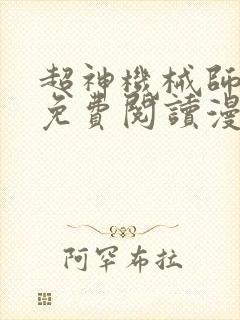 超神機械師
免費閱讀漫
阿罕布拉